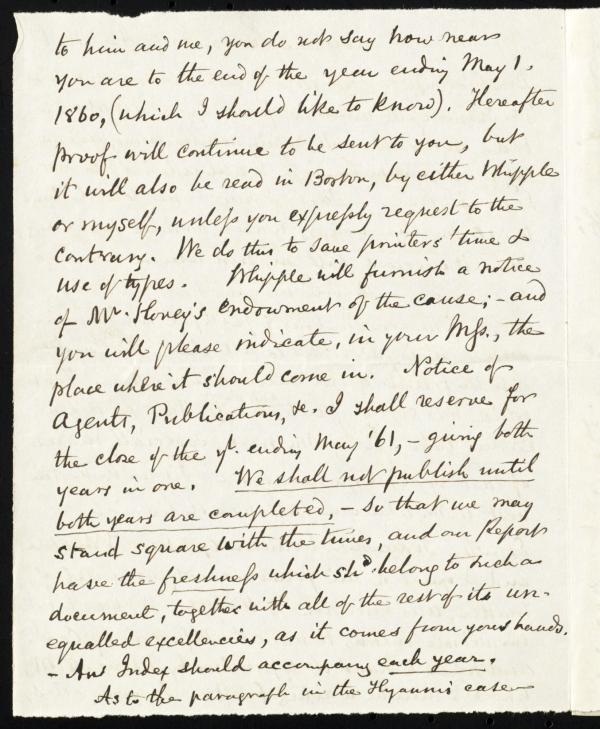 to him and me, you do not say how near
you are to the end of the year ending May 1,
1860, (which I should like to know). Hereafter
proof will continue to be sent to you, but
it will also be read in Boston, by either Whipple
or myself, unless you expressly request to the
contrary. We do this to save printers' time &
use of types. Whipple will furnish a notice
of Mr. Hovey's endowment of the cause; - and
you will please indicate, in your Mss., the
place where it should come in. Notice of
Agents, Publications, &c. I shall reserve for
the close of the yr. ending May '61, - giving both
years in one. We shall not publish until
both years are completed, - so that we may
stand square with the times, and our Report
have the freshness which shd. belong to such a
document, together with all of the rest of its un-
equalled excellencies, as it comes from your hands.
- An Index should accompany each year.
As to the paragraph in the Hyannis case